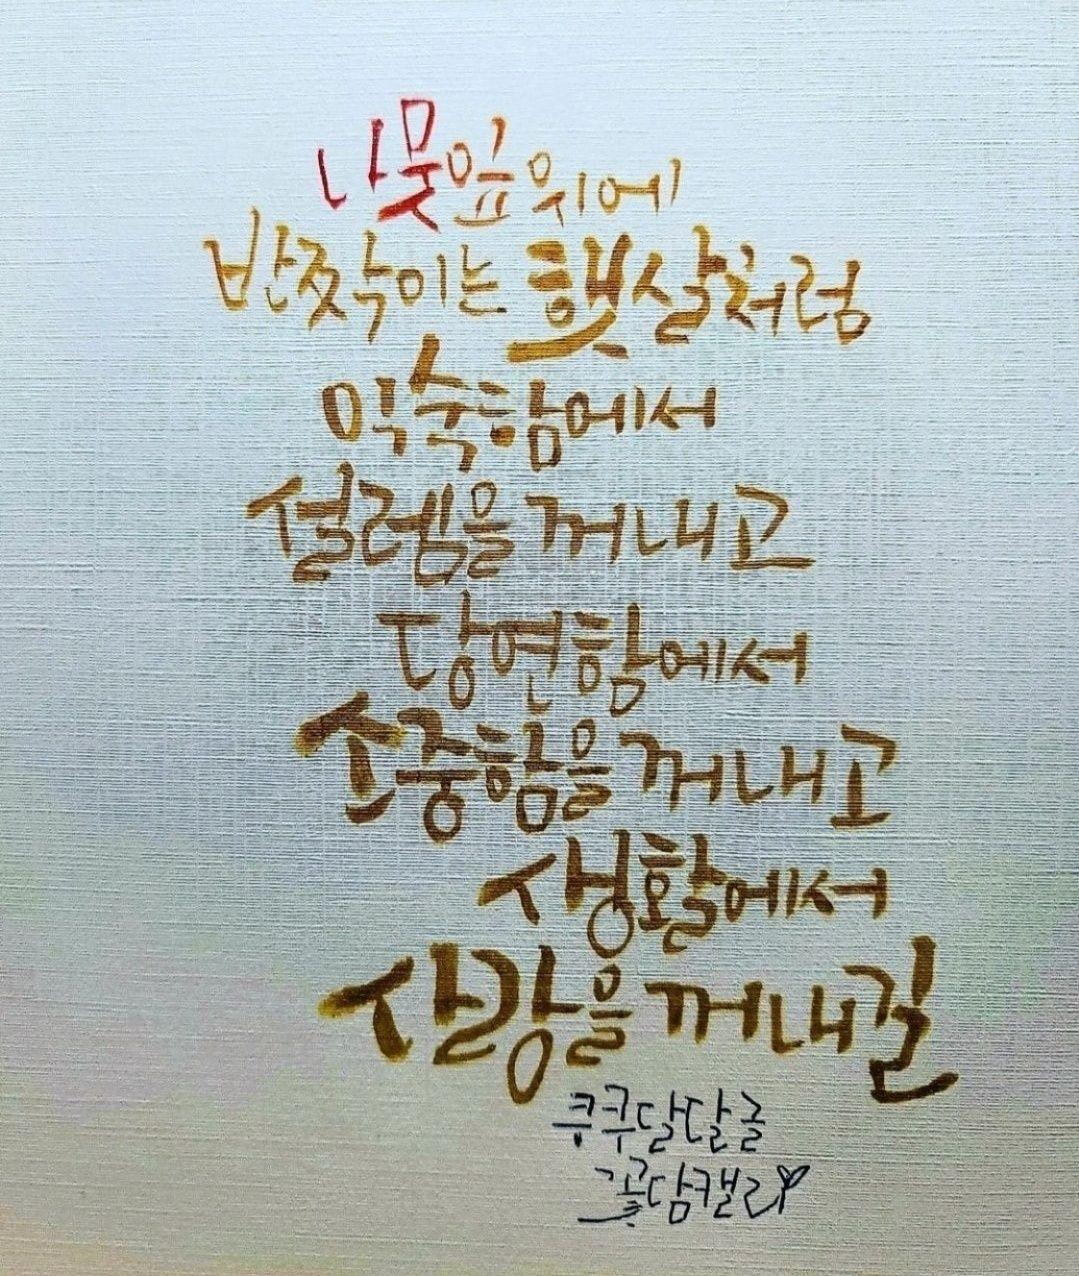 나뭇잎 위에
반짝이는 햇살처럼
익숙함에서
설렘을 꺼내고
당연함에서
소중함을 꺼내고
생활에서
사랑을 꺼내길
쿠쿠달달글
꽃담캘리